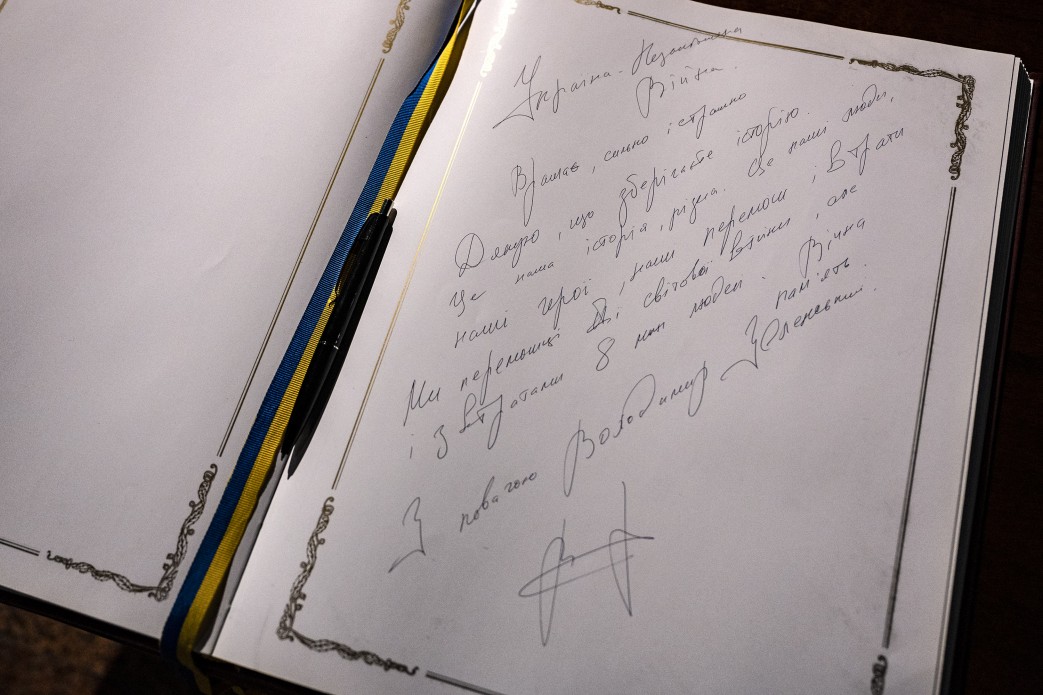 Україна - Незакінчена
Війна.
Вражає, сильно і страшно
Дякую, що зберігаєте історію.
Це наша історія, різна. Це наші люди,
наші герої, наші перемоги і втрати
Ми переможці ІІ світової війни, але
і з втратами 8 млн людей. Вічна
пам'ять.
З повагою Володимир Зеленський.